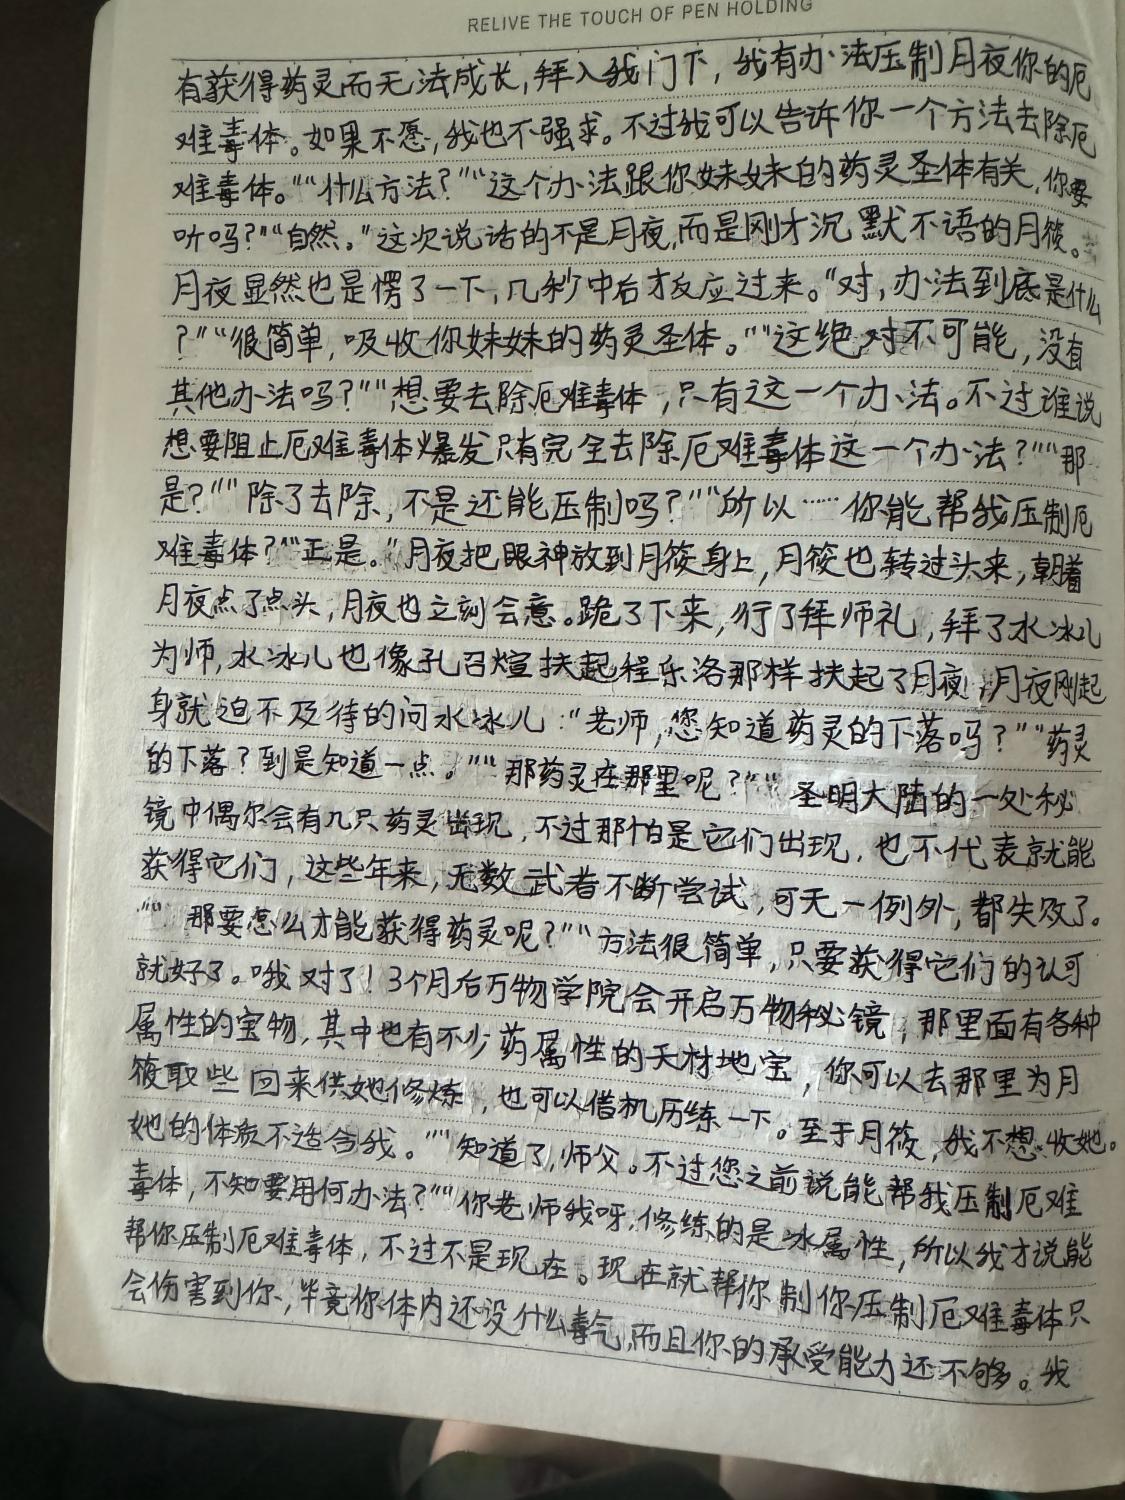 RELIVE THE TOUCH OF PEN HOLDING
有获得药灵而无法成长，拜入我门下，我有办法压制月夜你的厄
难毒体。如果不愿，我也不强求。不过我可以告诉你一个方法去除厄
难毒体。”“什么方法？”“这个办法跟你妹妹的药灵圣体有关，你要
听吗？”“自然。”这次说话的不是月夜，而是刚才沉默不语的月筱。
月夜显然也是愣了一下，几秒中后才反应过来。“对，办法到底是什么
？”“很简单，吸收你妹妹的药灵圣体。”“这绝对不可能，没有
其他办法吗？”“想要去除厄难毒体，只有这一个办法。不过谁说
想要阻止厄难毒体爆发只有完全去除厄难毒体这一个办法？”“那
是？”“除了去除，不是还能压制吗？”“所以……你能帮我压制厄
难毒体？”“正是。”月夜把眼神放到月筱身上，月筱也转过头来，朝着
月夜点了点头，月夜也立刻会意。跪了下来，行了拜师礼，拜了水冰儿
为师，水冰儿也像孔召煊扶起程乐洛那样扶起了月夜，月夜刚起
身就迫不及待的问水冰儿：“老师，您知道药灵的下落吗？”“药灵
的下落？到是知道一点。”“那药灵在那里呢？”“圣明大陆的一处秘
镜中偶尔会有几只药灵出现，不过那怕是它们出现，也不代表就能
获得它们，这些年来，无数武者不断尝试，可无一例外，都失败了。
”“那要怎么才能获得药灵呢？”“方法很简单，只要获得它们的认可
就好了。哦对了！3个月后万物学院会开启万物秘镜，那里面有各种
属性的宝物，其中也有不少药属性的天材地宝，你可以去那里为月
筱取些回来供她修炼，也可以借机历练一下。至于月筱，我不想收她。
她的体质不适合我。”“知道了，师父。不过您之前说能帮我压制厄难
毒体，不知要用何办法？”“你老师我呀，修练的是冰属性，所以我才说能
帮你压制厄难毒体，不过不是现在。现在就帮你制你压制厄难毒体只
会伤害到你，毕竟你体内还没什么毒气，而且你的承受能力还不够。我